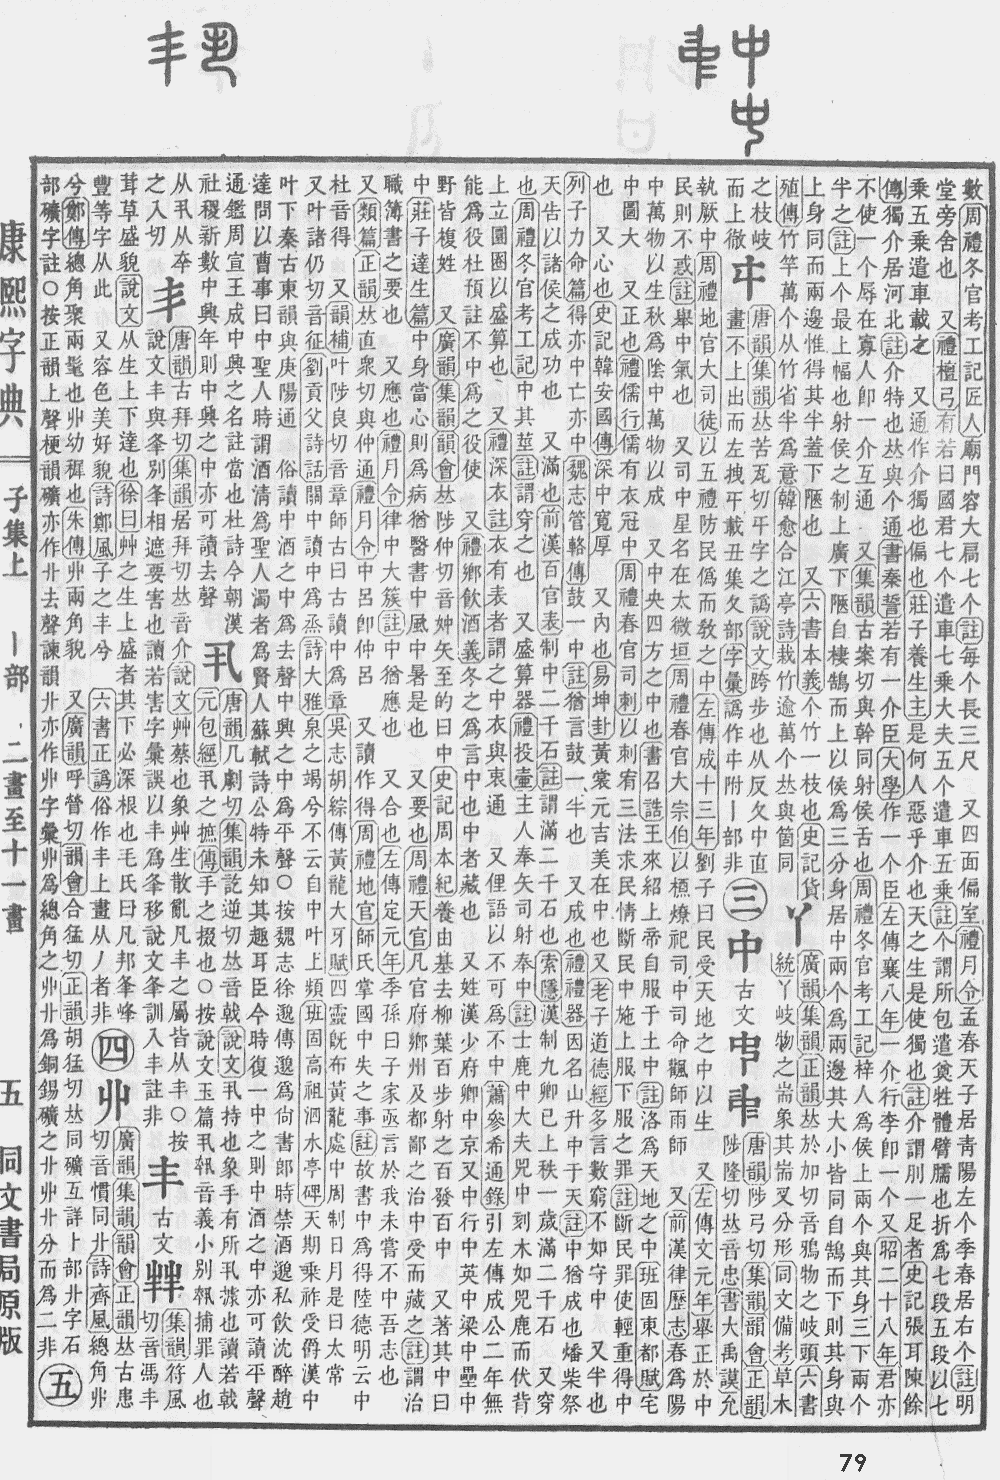 數周禮冬官考工記匠人廟門容大扃七个註每个長三尺　又四面偏室禮月令孟春天子居靑陽左个季春居右个註明
堂旁舍也　又禮檀弓有若曰國君七个遣車七乘大夫五个遣車五乘註个謂所包遣奠牲體臂臑也折爲七段五段以七
乘五乘遣車載之　又通作介獨也偏也莊子養生主是何人惡乎介也天之生是使獨也註介謂刖一足者史記張耳陳餘
傳獨介居河北註介特也𠀤與个通書秦誓若有一介臣大學作一个臣左傳襄八年一介行李卽一个又昭二十八年君亦
不使一个辱在寡人卽一介互通　又集韻古案切與幹同射侯舌也周禮冬官考工記梓人爲侯上兩个與其身三下兩个
半之註上个最上幅也射侯之制上廣下陿自棲鵠而上以侯爲三分身居中兩个爲兩邊其大小皆同自鵠而下則其身與
上身同而兩邊惟得其半蓋下陿也　又六書本義个竹一枝也史記貨
殖傳竹竿萬个从竹省半爲意韓愈合江亭詩栽竹逾萬个𠀤與箇同
丫
廣韻集韻正韻𠀤於加切音鴉物之岐頭六書
統丫岐物之耑象其耑叉分形同文備考草木
之枝岐
而上徹
唐韻集韻𠀤苦瓦切㐄字之譌說文跨步也从反夂中直
畫不上出而左拽㐄載丑集夂部字彙譌作㐄附丨部非
三
中古文𠁧𠁩
唐韻陟弓切集韻韻會正韻
陟隆切𠀤音忠書大禹謨允
執厥中周禮地官大司徒以五禮防民僞而敎之中左傳成十三年劉子曰民受天地之中以生　又左傳文元年舉正於中
民則不惑註舉中氣也　又司中星名在太微垣周禮春官大宗伯以槱燎祀司中司命飌師雨師　又前漢律歷志春爲陽
中萬物以生秋爲陰中萬物以成　又中央四方之中也書召誥王來紹上帝自服于土中註洛爲天地之中班固東都賦宅
中圖大　又正也禮儒行儒有衣冠中周禮春官司刺以刺宥三法求民情斷民中施上服下服之罪註斷民罪使輕重得中
也　又心也史記韓安國傳深中寬厚　又內也易坤卦黃裳元吉美在中也又老子道德經多言數窮不如守中　又半也
列子力命篇得亦中亡亦中魏志管輅傳鼓一中註猶言鼓一半也　又成也禮禮器因名山升中于天註中猶成也燔柴祭
天告以諸侯之成功也　又滿也前漢百官表制中二千石註謂滿二千石也索隱漢制九卿已上秩一歲滿二千石　又穿
也周禮冬官考工記中其莖註謂穿之也　又盛算器禮投壷主人奉矢司射奉中註士鹿中大夫兕中刻木如兕鹿而伏背
上立圓圈以盛算也　又禮深衣註衣有表者謂之中衣與衷通　又俚語以不可爲不中蕭參希通錄引左傳成公二年無
能爲役杜預註不中爲之役使　又禮鄉飲酒義冬之爲言中也中者藏也　又姓漢少府卿中京又中行中英中梁中壘中
野皆複姓　又廣韻集韻韻會𠀤陟仲切音妕矢至的曰中史記周本紀養由基去柳葉百步射之百發百中　又著其中曰
中莊子達生篇中身當心則爲病猶醫書中風中暑是也　又要也周禮天官凡官府鄉州及都鄙之治中受而藏之註謂治
職簿書之要也　又應也禮月令律中大簇註中猶應也　又合也左傳定元年季孫曰子家亟言於我未嘗不中吾志也
又類篇正韻𠀤直衆切與仲通禮月令中呂卽仲呂　又讀作得周禮地官師氏掌國中失之事註故書中爲得陸德明云中
杜音得　又韻補叶陟良切音章師古曰古讀中爲章吳志胡綜傳黃龍大牙賦四靈旣布黃龍處中周制日月是曰太常
又叶諸仍切音征劉貢父詩話關中讀中爲烝詩大雅泉之竭兮不云自中叶上頻班固高祖泗水亭碑天期乘祚受爵漢中
叶下秦古東韻與庚陽通　俗讀中酒之中爲去聲中興之中爲平聲○按魏志徐邈傳邈爲尙書郎時禁酒邈私飲沈醉趙
達問以曹事曰中聖人時謂酒淸爲聖人濁者爲賢人蘇軾詩公特未知其趣耳臣今時復一中之則中酒之中亦可讀平聲
通鑑周宣王成中興之名註當也杜詩今朝漢
社稷新數中興年則中興之中亦可讀去聲
丮
唐韻几劇切集韻訖逆切𠀤音戟說文丮持也象手有所丮據也讀若戟
元包經丮之摭傳手之掇也○按說文玉篇丮音義小别捕罪人也
从丮从㚔
之入切
丯
唐韻古拜切集韻居拜切𠀤音介說文艸蔡也象艸生散亂凡丯之屬皆从丯○按
說文丰與夆別夆相遮要害也讀若害字彙誤以丰爲夆移說文夆訓入丰註非
丰古文
集韻符風
切音馮丰
茸草盛貌說文从生上下達也徐曰艸之生上盛者其下必深根也毛氏曰凡邦夆峰
豐等字从此　又容色美好貌詩鄭風子之丰兮　六書正譌俗作丰上畫从丿者非
四
丱
廣韻集韻韻會正韻𠀤古患
切音慣同卝詩齊風總角丱
兮鄭傳總角聚兩髦也丱幼稺也朱傳丱兩角貌　又廣韻呼瞢切韻會合猛切正韻胡猛切𠀤同礦互詳上部卝字石
部礦字註○按正韻上聲梗韻礦亦作卝去聲諫韻卝亦作丱字彙丱爲總角之丱卝爲銅錫礦之卝丱卝分而爲二非
五
康熙字典
子集上　丨部　二畫至十一畫
五
同文書局原版
79